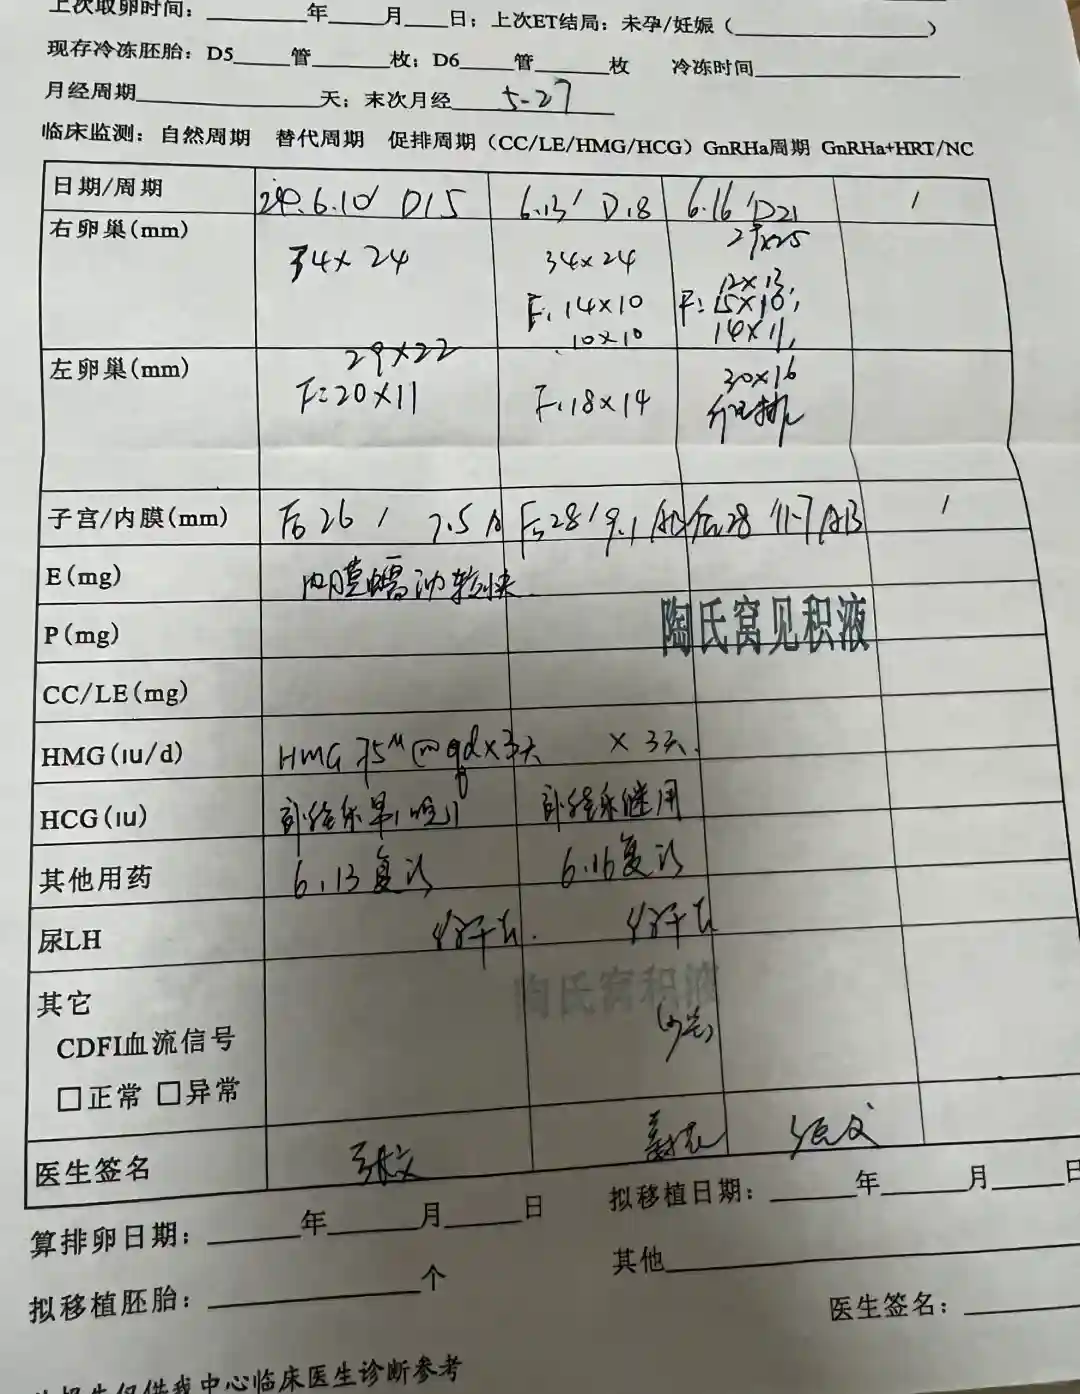 上次取卵时间：____年____月____日；上次ET结局：未孕/妊娠（________）
现存冷冻胚胎：D5____管____枚；D6____管____枚 冷冻时间________
月经周期________天；末次月经 5-27
临床监测：自然周期 替代周期 促排周期（CC/LE/HMG/HCG）GnRHa周期 GnRHa+HRT/NC
日期/周期 6.10/ D15 6.13/ D18 6.16/D21 /
右卵巢(mm) 34×24 34×24 29×25
F: 14×10 10×10 F: 12×13, 15×10, 14×11,
左卵巢(mm) 29×22 30×16
F: 20×11 F: 18×14 已排
子宫/内膜(mm) 后26 / 7.5 A 后28/9.1 AB 后28 /11.7 AB /
E(mg) 内膜蠕动较快
P(mg) 陶氏窝见积液
CC/LE(mg)
HMG(ıu/d) HMG 75u im qd×3天 ×3天.
HCG(ıu) 补佳乐 补佳乐继用
其他用药 6.13复诊 6.16复诊
尿LH
其它 陶氏窝积液
(少量)
CDFI血流信号
□正常 □异常
医生签名 张文
算排卵日期：____年____月____日 拟移植日期：____年____月____日
拟移植胚胎：________个 其他________
医生签名：____
仅供我中心临床医生诊断参考